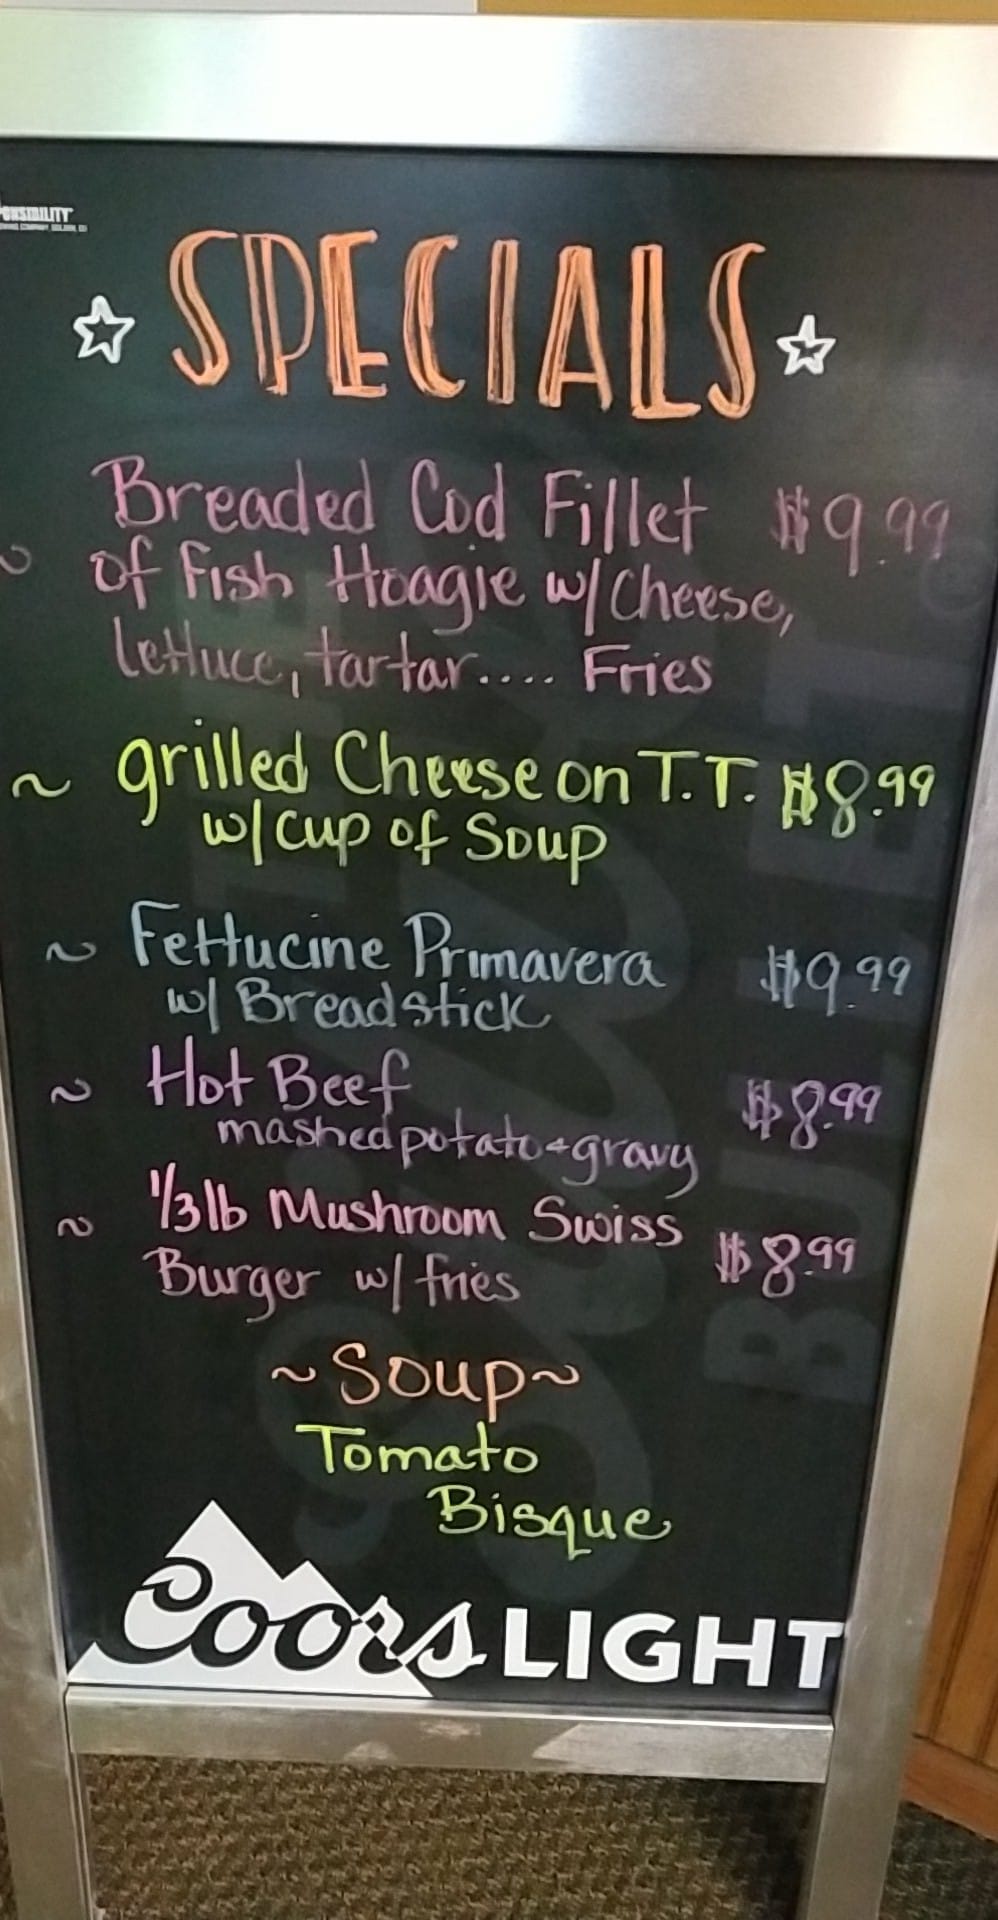 SPECIALS
Breaded Cod Fillet $9.99
of Fish Hoagie w/Cheese,
lettuce, tartar.... Fries
~ grilled Cheese on T.T. $8.99
w/ cup of Soup
~ Fettucine Primavera $9.99
w/ Breadstick
~ Hot Beef $8.99
mashed potato + gravy
~ 1/3 lb Mushroom Swiss $8.99
Burger w/ fries
~ Soup ~
Tomato
Bisque
Coors LIGHT